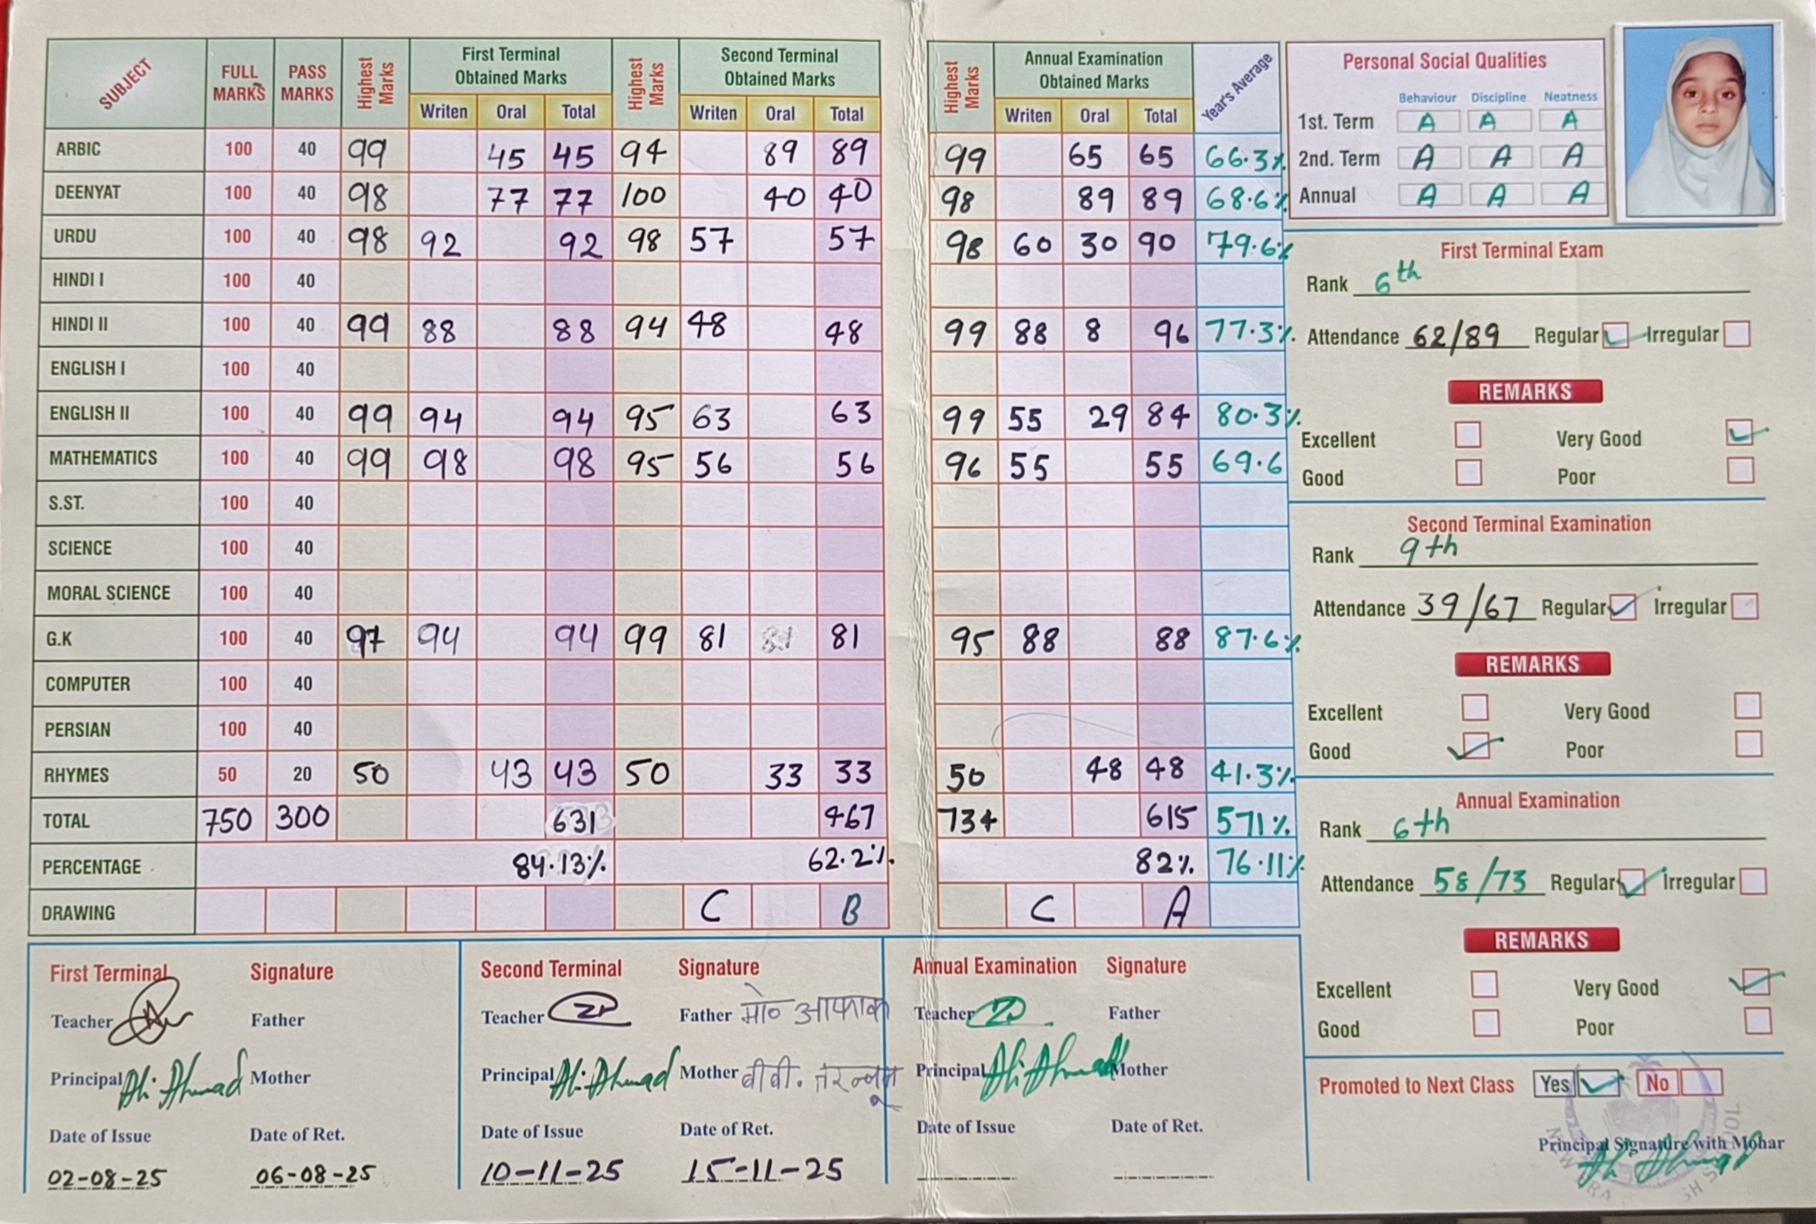 SUBJECT FULL MARKS PASS MARKS Highest Marks First Terminal Obtained Marks Highest Marks Second Terminal Obtained Marks Highest Marks Annual Examination Obtained Marks Year's Average
Writen Oral Total Writen Oral Total Writen Oral Total
ARBIC 100 40 99 45 45 94 89 89 99 65 65 66.3%
DEENYAT 100 40 98 77 77 100 40 40 98 89 89 68.6%
URDU 100 40 98 92 92 98 57 57 98 60 30 90 79.6%
HINDI I 100 40
HINDI II 100 40 99 88 88 94 48 48 99 88 8 96 77.3%
ENGLISH I 100 40
ENGLISH II 100 40 99 94 94 95 63 63 99 55 29 84 80.3%
MATHEMATICS 100 40 99 98 98 95 56 56 96 55 55 69.6
S.ST. 100 40
SCIENCE 100 40
MORAL SCIENCE 100 40
G.K 100 40 97 94 94 99 81 81 95 88 88 87.6%
COMPUTER 100 40
PERSIAN 100 40
RHYMES 50 20 50 43 43 50 33 33 50 48 48 41.3%
TOTAL 750 300 631 467 734 615 571%
PERCENTAGE 84.13% 62.2% 82% 76.11%
DRAWING C B C A
First Terminal Signature
Teacher Father
Principal Ali Ahmad Mother
Date of Issue Date of Ret.
02-08-25 06-08-25
Second Terminal Signature
Teacher Father मो० आफाक
Principal Ali Ahmad Mother बीबी.
Date of Issue Date of Ret.
10-11-25 15-11-25
Annual Examination Signature
Teacher Father
Principal Ali Ahmad Mother
Date of Issue Date of Ret.
Personal Social Qualities
Behaviour Discipline Neatness
1st. Term A A A
2nd. Term A A A
Annual A A A
First Terminal Exam
Rank 6th
Attendance 62/89 Regular Irregular
REMARKS
Excellent Very Good
Good Poor
Second Terminal Examination
Rank 9th
Attendance 39/67 Regular Irregular
REMARKS
Excellent Very Good
Good Poor
Annual Examination
Rank 6th
Attendance 58/73 Regular Irregular
REMARKS
Excellent Very Good
Good Poor
Promoted to Next Class Yes No
Principal Signature with Mohar
Ali Ahmad